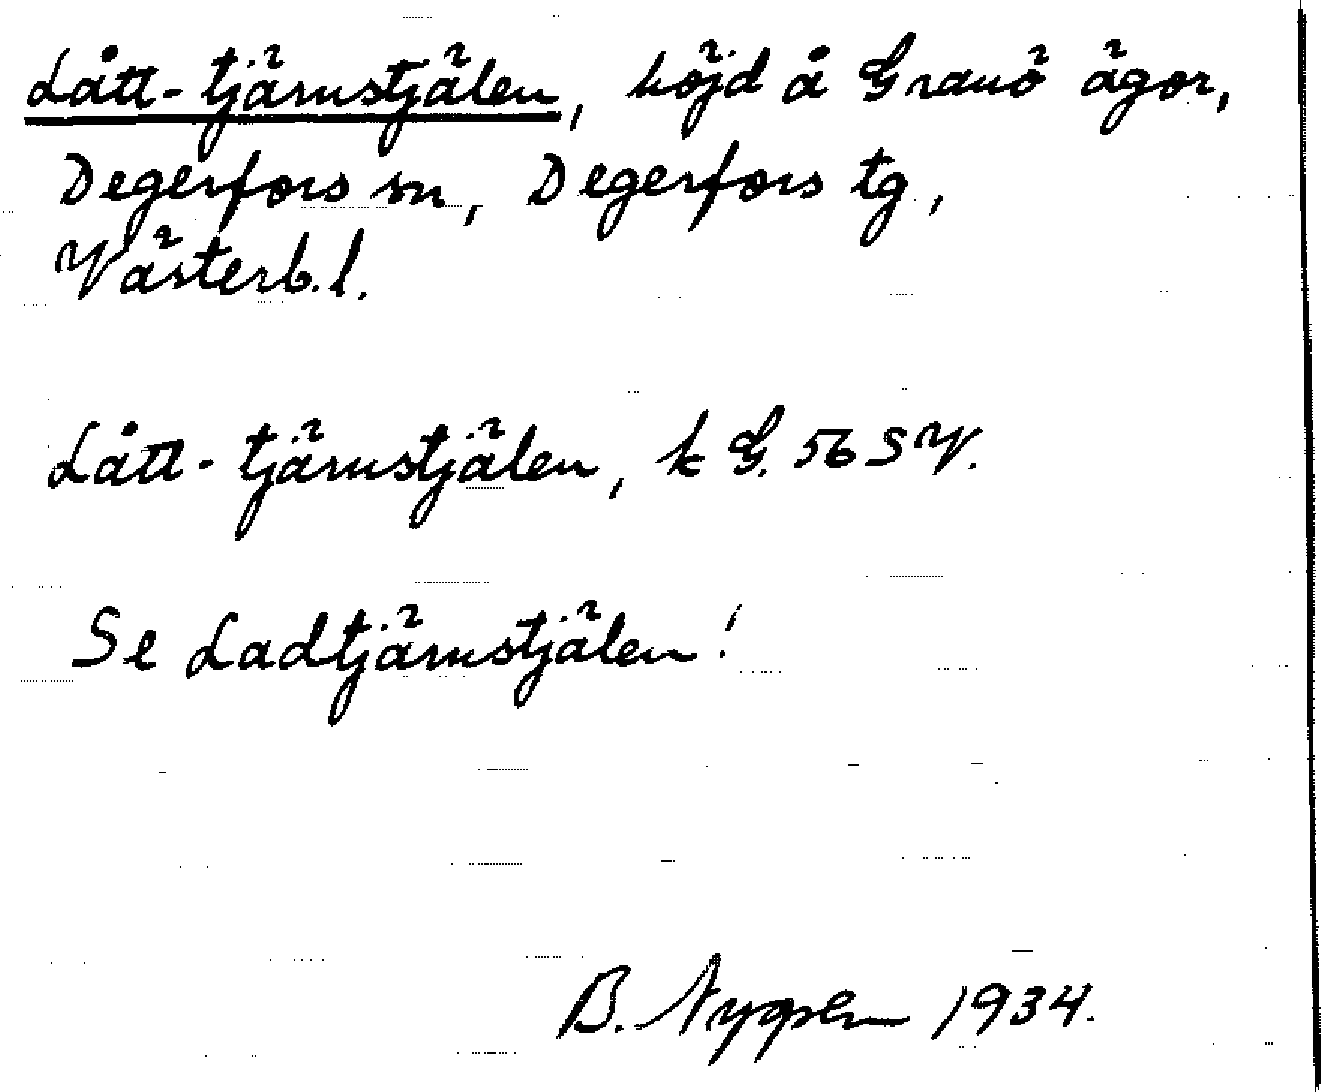 Lått-tjärnstjälen, höjd å Granö ägor,
Degerfors sn, Degerfors tg,
Västerb.l.
Lått-tjärnstjälen, k G. 56 SV.
Se Ladtjärnstjälen!
B. Nygren 1934.